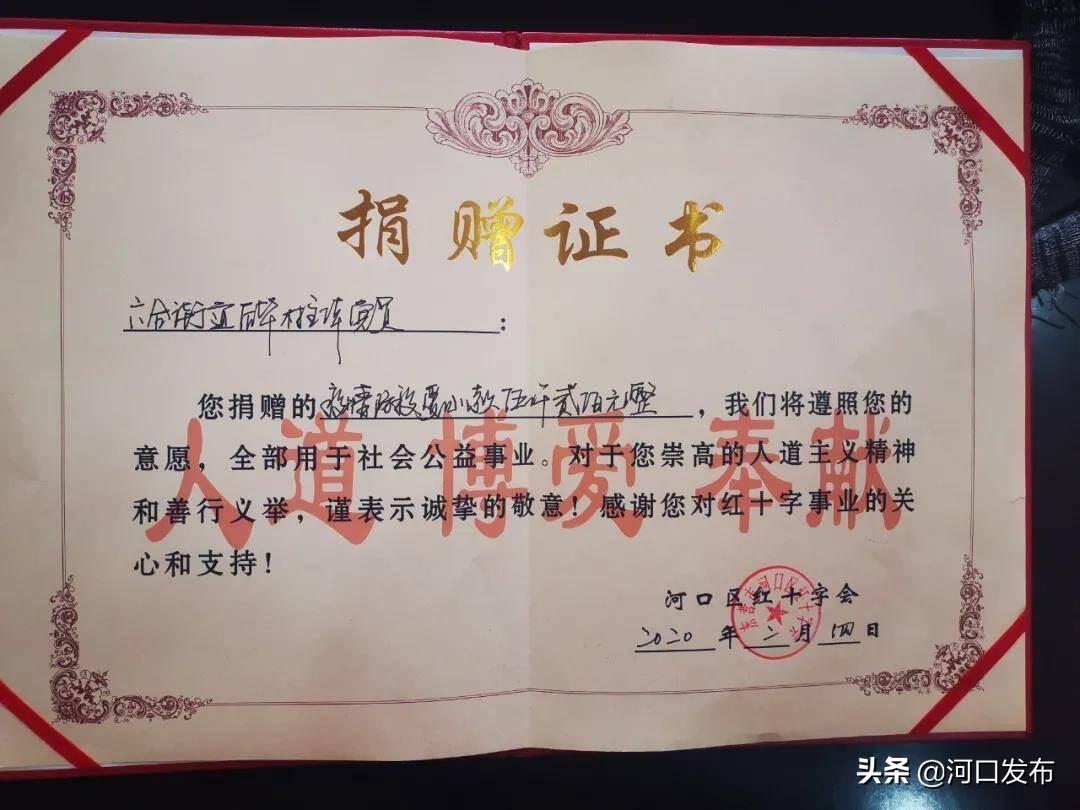 捐赠证书
六合街道 党员:
您捐赠的 款伍仟贰佰元整,我们将遵照您的
意愿,全部用于社会公益事业。对于您崇高的人道主义精神
和善行义举,谨表示诚挚的敬意!感谢您对红十字事业的关
心和支持!
人道 博爱 奉献
河口区红十字会
二〇二〇年二月四日
头条 @河口发布